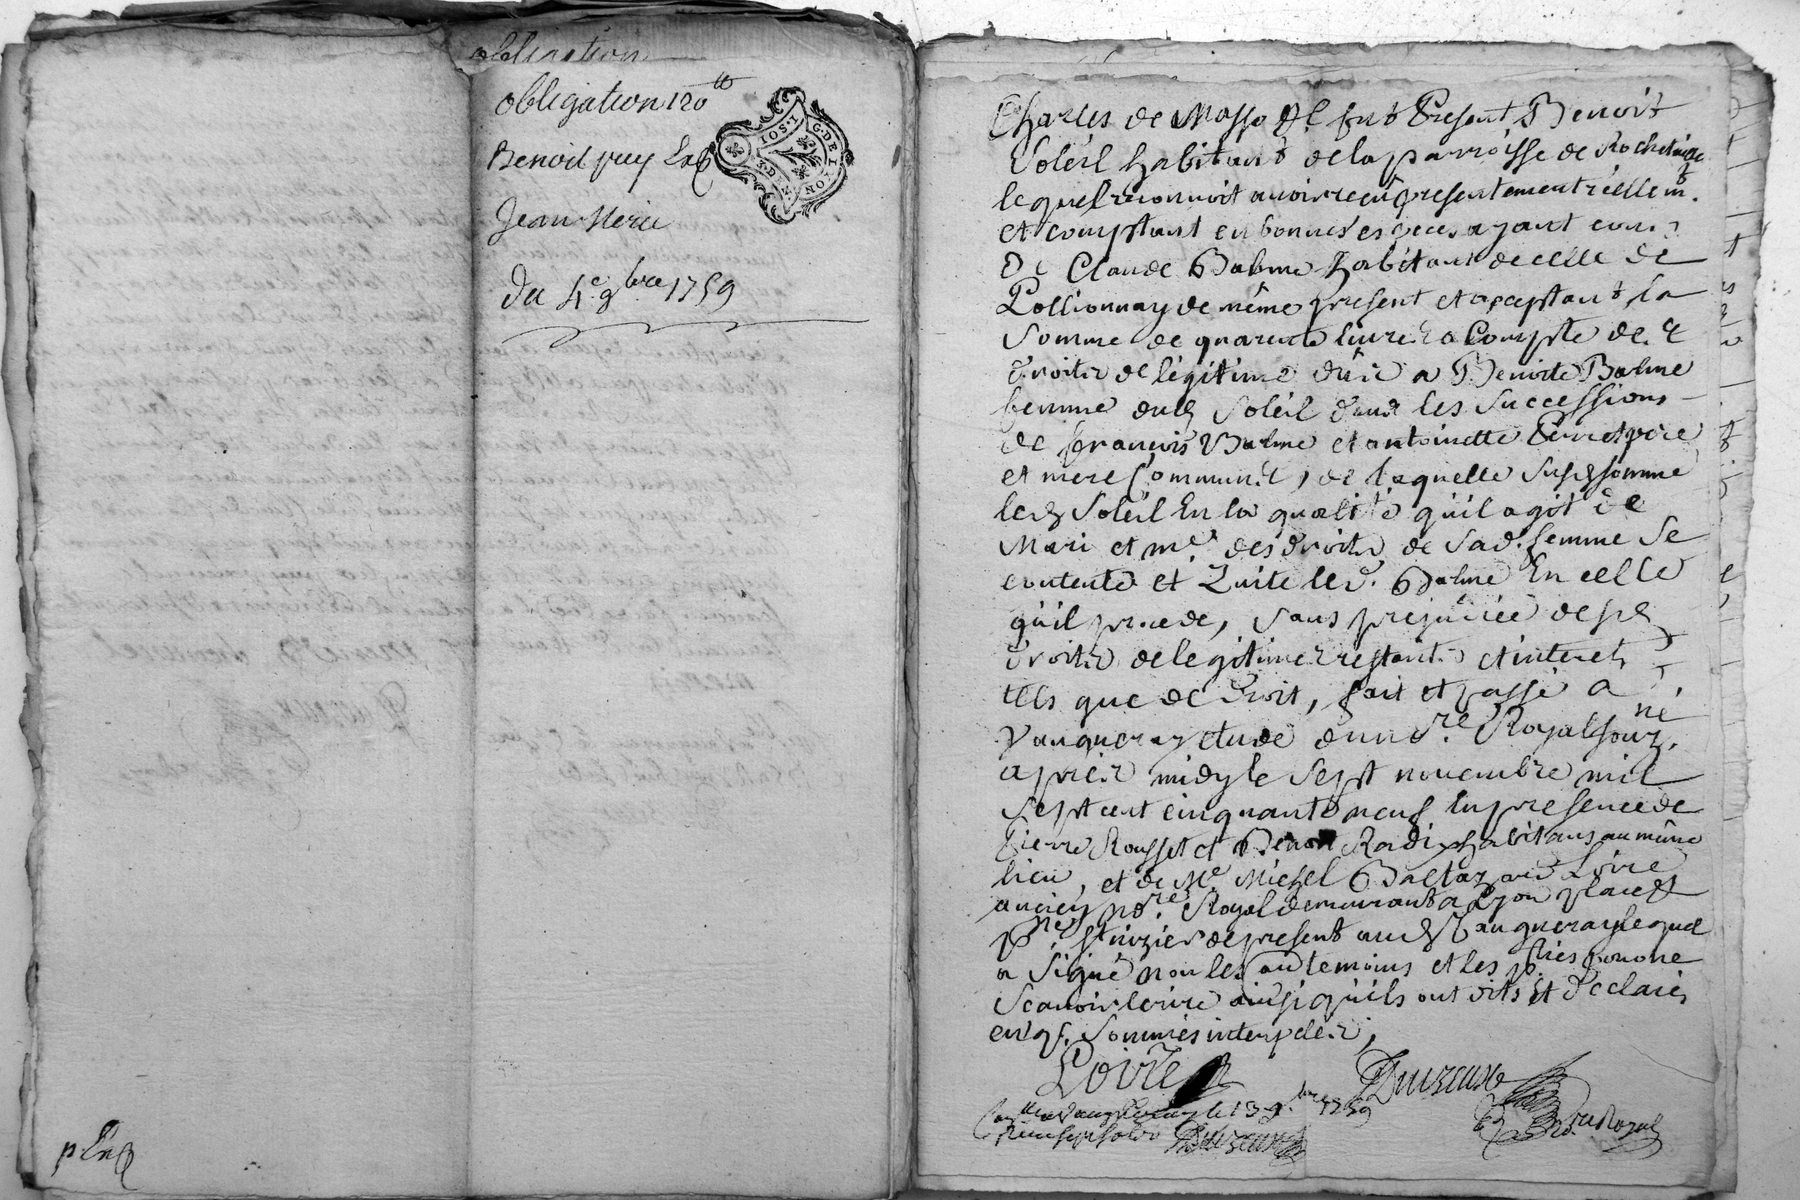 obligation
obligation 120tt
Benoit puy Exp
Jean Merie
Du 4e 9bre 1759
G. DE LYON
p Exp
Charles de Masso &c. fut Present Benoit
Soleil habitant de la parroisse de Rochetaigt
lequel reconnoit avoir reçû presentement réellemt.
et comptant en bonnes especes ayant cours
De Claude Balme habitant de celle de
Pollionnay de même present et aceptant la
Somme de quarente livres a Compte des
droits de légitime dûs a Benoite Balme
femme dud Soleil dans les Successions
de francois Balme et antoinette pere
et mere Communs, de laquelle Susd somme
led Soleil En la qualité qu'il agit de
Mari et me. des droits de Sad. femme Se
contente et Quite led. Balme En celle
qu'il procede, Sans prejudice des
droits de legitime restants et interets
tels que de droit, fait et passé a
Vaugneray etude du nore. Royal Souz.né
après midy le Sept novembre mil
Sept cent cinquante neuf En presence de
Pierre Rousset et Benoit Radix habitans au même
lieu, et de Me. Michel Baltazard Loire
ancien nore. Royal demeurant a Lyon place et
psse St nizier de present aud Vaugneray lequel
a Signé non les au temoins et les pties pour ne
Scavoir Ecrire ainsi qu'ils ont dits Et declarés
enqs. Sommés interpelés,
Loire
a Vaugneray le 13 9bre 1759
Nre Royal